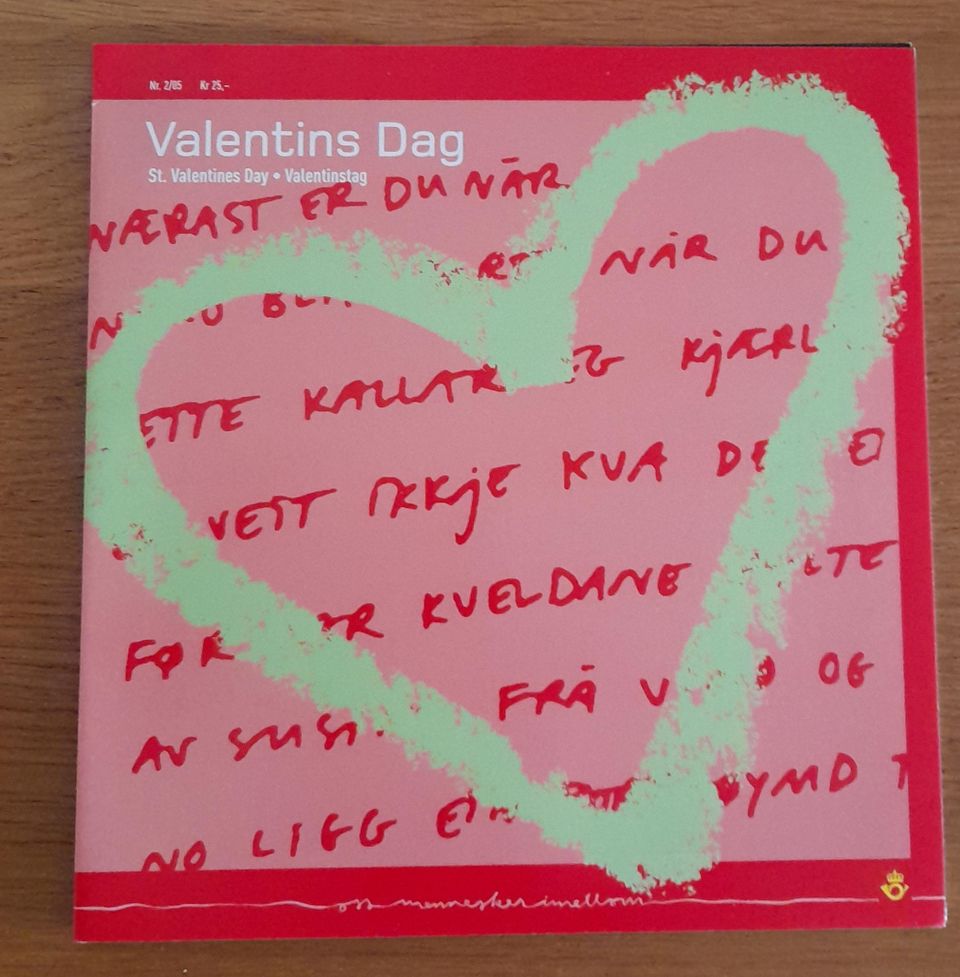 Nr. 2/05 Kr 25,-
Valentins Dag
St. Valentines Day • Valentinstag
NÆRAST ER DU NÅR
NÅR DU
ETTE KALLAR EG KJÆRL
VETT IKKJE KVA DE EI
FØR KVELDANE LTE
AV SUSI FRÅ V D OG
NO LIGG EIN GYMD T
oss mennesker imellom